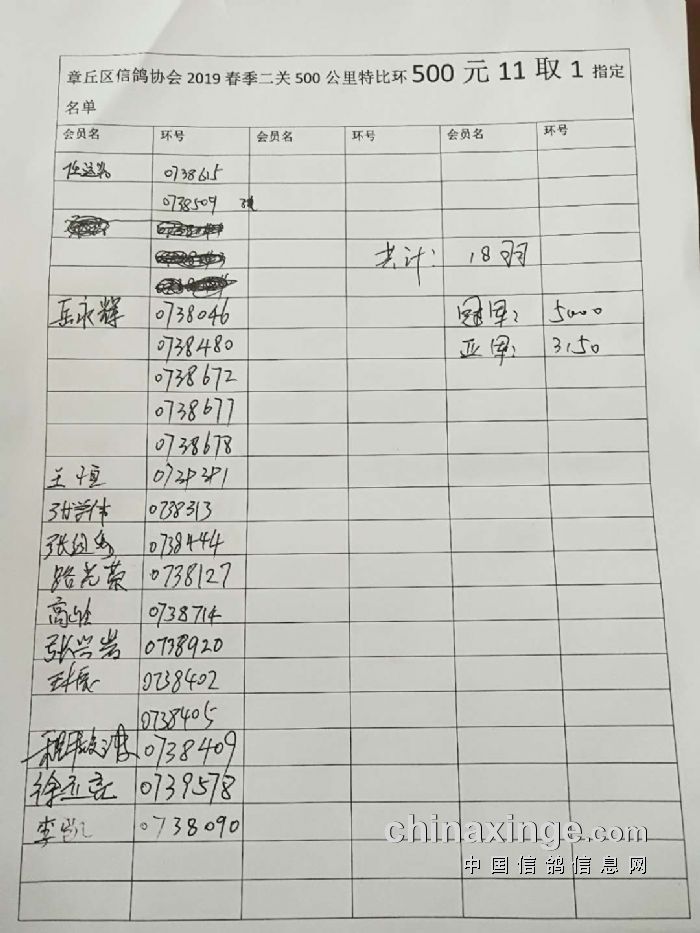 章丘区信鸽协会 2019 春季二关 500 公里特比环 500 元 11 取 1 指定
名单
会员名 环号 会员名 环号 会员名 环号
0738615
0738509
共计: 18羽
岳永辉 0738046 冠军: 5000
0738480 亚军: 3150
0738672
0738677
0738678
王恒
张学体 0738313
0738444
路光荣 0738127
高 0738714
张兴岩 0738920
0738402
0738405
0738409
徐立亮 0739578
李凯 0738090
chinaxinge.com
中国信鸽信息网